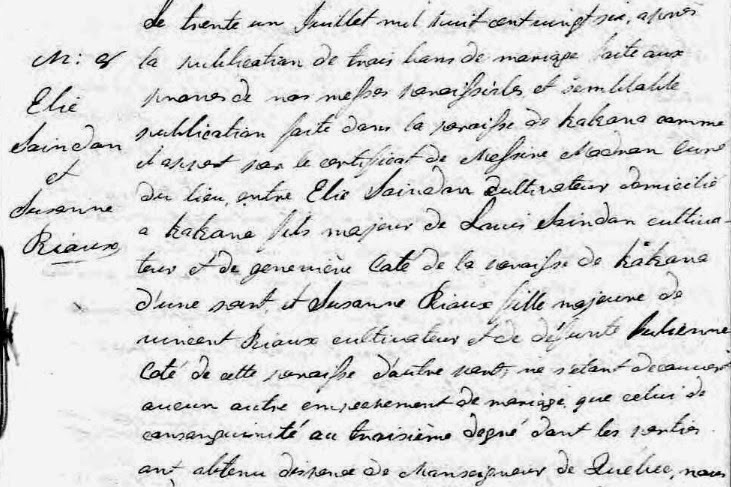 M: 8
Elie
Saindon
et
Susanne
Riaux
Le trente un Juillet mil huit cent vingt six, après
la publication de trois bans de mariage faite aux
prones de nos messes paroissiales et semblable
publication faite dans la paroisse de Kakona comme
il appert par le certificat de Messire curé
du lieu, entre Elie Saindon cultivateur domicilié
a Kakona fils majeur de Louis Saindon cultiva-
teur et de geneviève Coté de la paroisse de Kakona
d'une part, et Susanne Riaux fille majeure de
vincent Riaux cultivateur et de défunte Julienne
Coté de cette paroisse d'autre part; ne s'etant decouvert
aucun autre empechement de mariage que celui de
consanguinité au troisième degré dont les parties
ont obtenu dispence de Monseigneur de Québec, nous